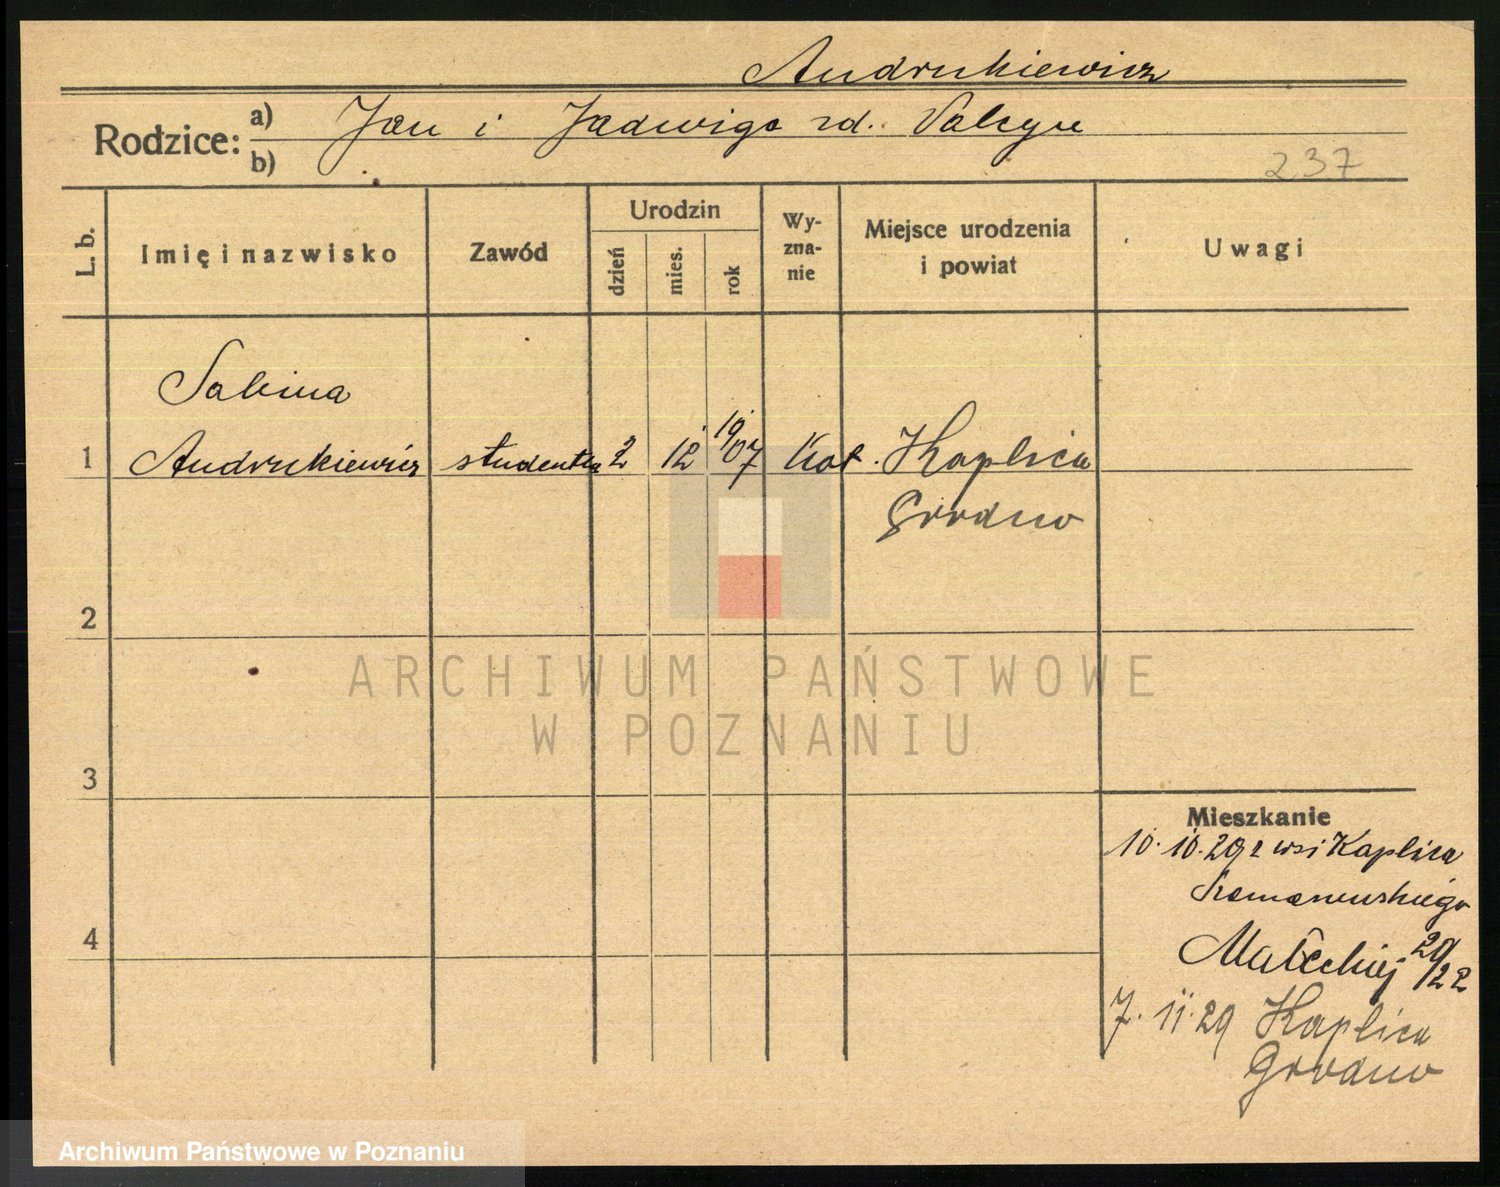 Andrukiewicz
Rodzice: a) Jan i Jadwiga zd. Valcyn
b)
237
L. b.
Imię i nazwisko
Zawód
Urodzin
dzień
mies.
rok
Wy-
zna-
nie
Miejsce urodzenia
i powiat
Uwagi
Sabina
1 Andrukiewicz studentka 2 12 1907 Kat. Kaplica
Grodno
2
3
4
Mieszkanie
10. 10. 29 z wsi Kaplica
Małeckiej 20/22
7. 11. 29 Kaplica
Grodno
ARCHIWUM PAŃSTWOWE
W POZNANIU
Archiwum Państwowe w Poznaniu